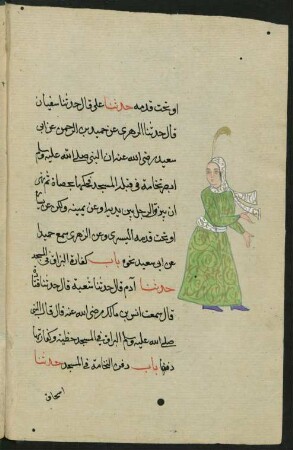 او تحت قدمه حدثنا على قال حدثنا سفيان
قال حدثنا الزهرى عن حميد بن الرحمن عن ابى
سعيد رضى الله عنه ان النبى صلى الله عليه وسلم
ابصر نخامة فى قبلة المسجد فحكها بحصاة ثم نهى
ان يبزق الرجل بين يديه او عن يمينه ولكن عن يساره
او تحت قدمه اليسرى وعن الزهرى سمع حميدا
عن ابو سعيد نحوه باب كفارة البزاق فى المسجد
حدثنا آدم قال حدثنا شعبة قال حدثنا قتادة
قال سمعت انس بن مالك رضى الله عنه قال قال النبى
صلى الله عليه وسلم البزاق فى المسجد خطيئة وكفارتها
دفنها باب دفن النخامة فى المسجد حدثنا
اسحاق